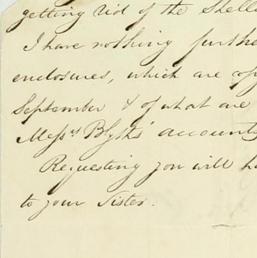 getting rid of the Shell
I have nothing furthe
enclosures, which are cop
September & of what are
Messrs Blyths' accounts
Requesting you will h
to your Sister.